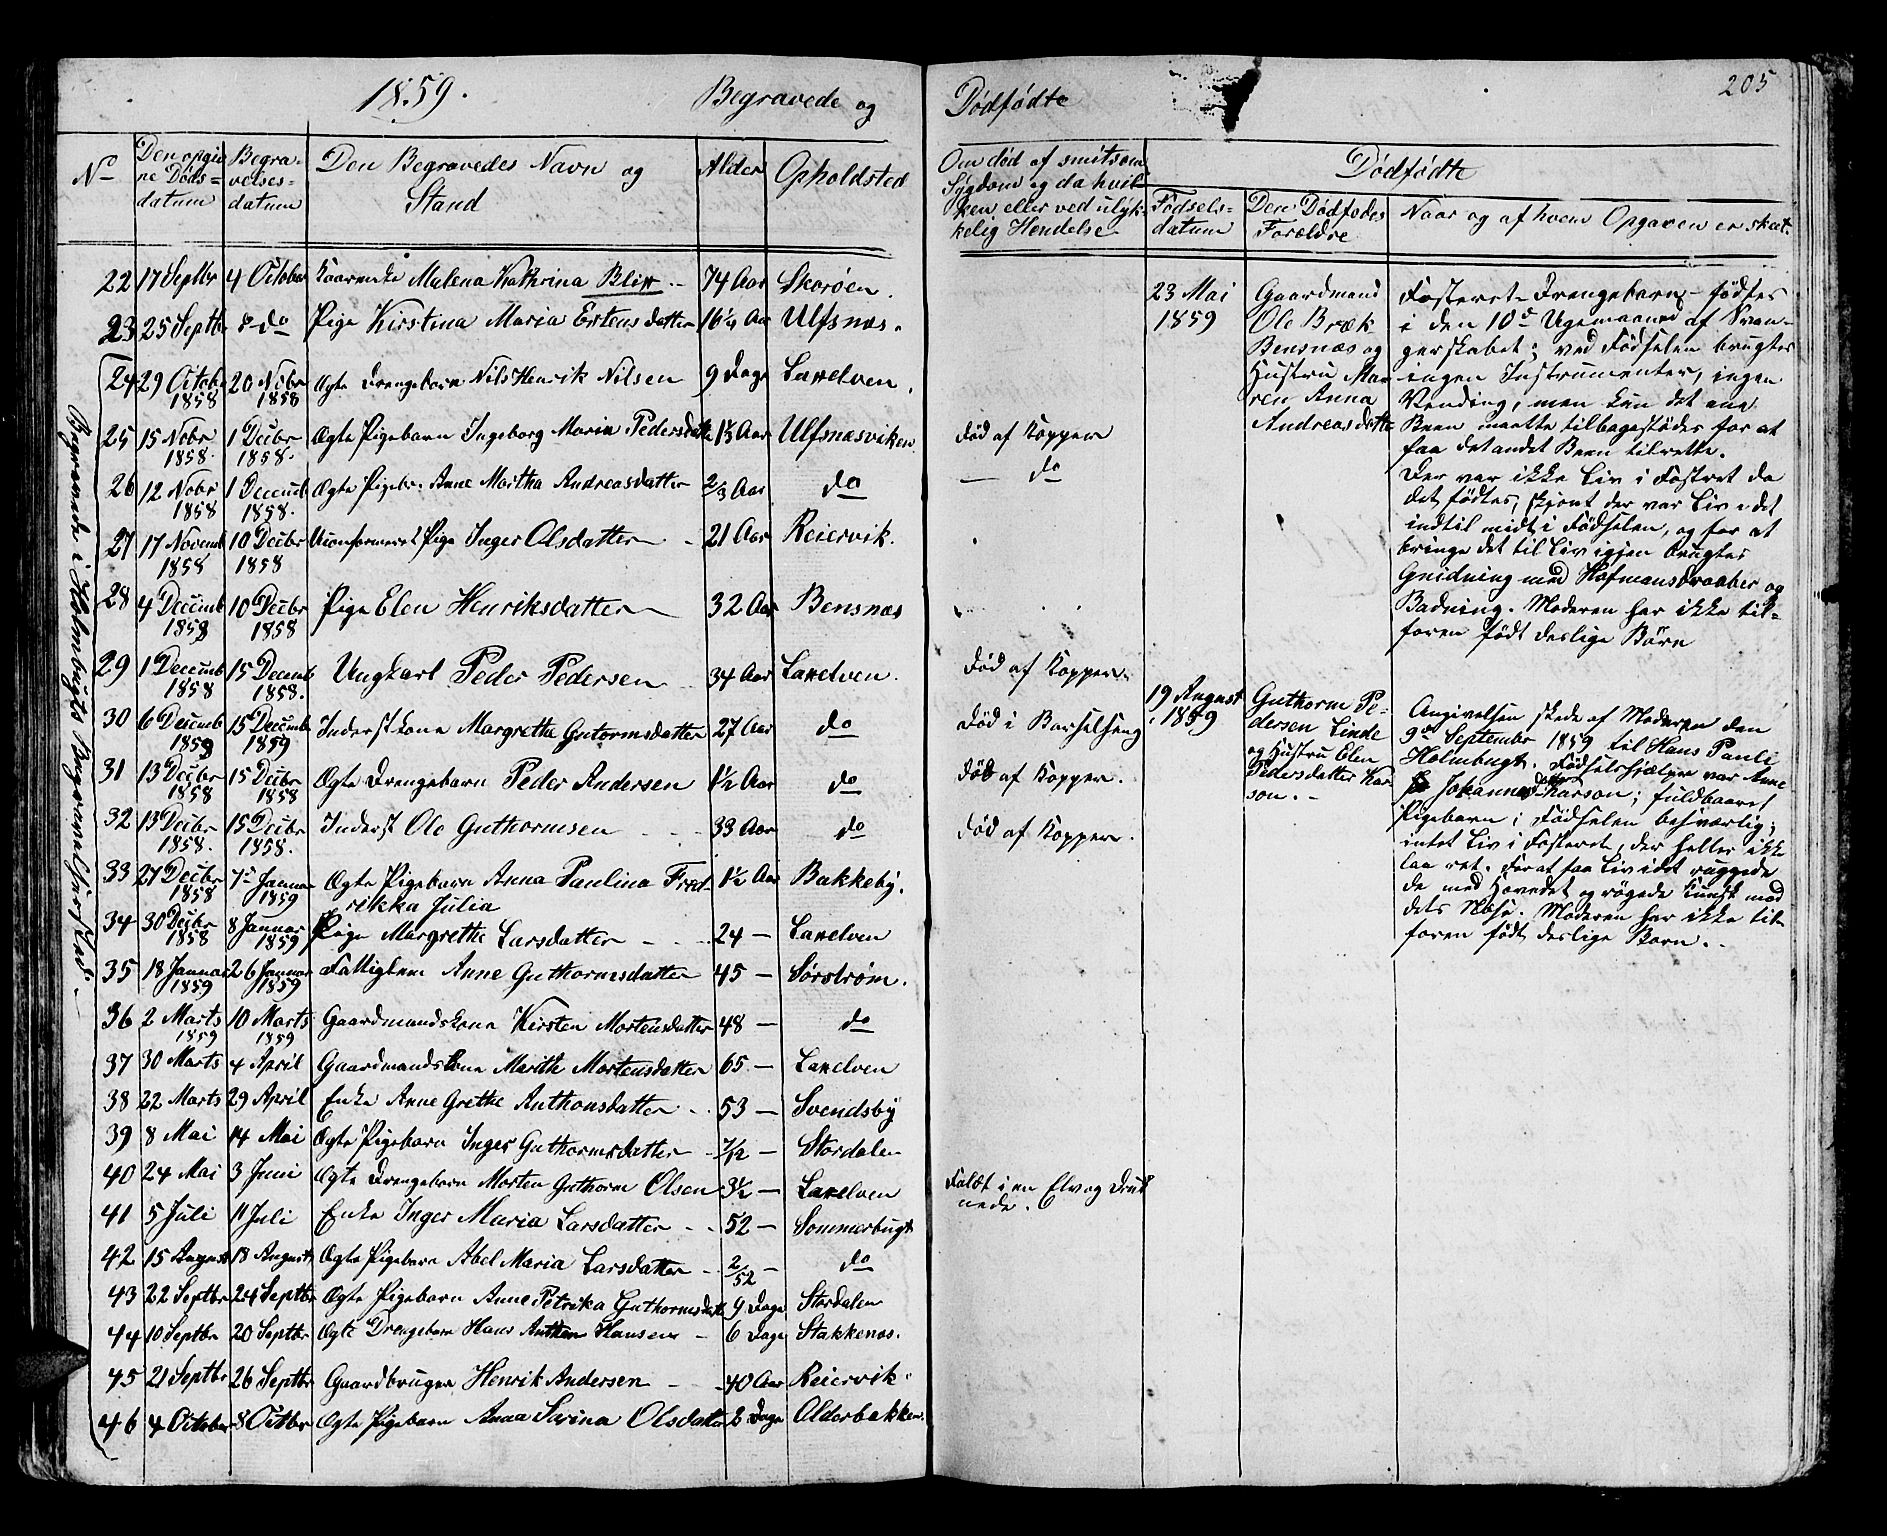 1859. Begravede og
Nº Den opgivne Dødsdatum Begravelsesdatum Den Begravedes Navn og Stand Alder Opholdsted
22 17 Septbr 4 October Kaarenke Malena Kathrina Blix 74 Aar Skorøen.
23 25 Septbr 8 do Pige Kirstina Maria Ertensdatter 16 1/4 Aar Ulfsnæs.
Begravede i Holmbugts Begravelsessted
24 29 Octob 1858 20 Nobr 1858 Ægte Drengebarn Nils Henrik Nilsen 9 Dage Lanelven.
25 15 Nobr 1858. 1 Decbr 1858. Ægte Pigebarn Ingeborg Maria Pedersdatter 1 1/3 Aar Ulfsnæsviken
26 12 Nobr 1858 1 Decemb 1858. Ægte Pigeb. Ane Martha Andreasdatter 2/3 Aar do
27 17 Novemb 1858 10 Decbr 1858 Uconfirmeret Pige Inger Olsdatter 21 Aar Reiervik.
28 4 Decemb 1858 10 Decbr 1858 Pige Elen Henriksdatter 32 Aar Bensnæs
29 1 Decemb 1858 15 Decemb 1858. Ungkarl Peder Pedersen 34 Aar Lanelven.
30 6 Decemb 1859 15 Decemb 1859 Inderst kone Margrethe Gutormsdatter 27 Aar do
31 13 Decbr 1858 15 Decbr 1858 Ægte Drengebarn Peder Andersen 1 1/2 Aar do
32 13 Decbr 1858. 15 Decbr 1858. Inderst Ole Guthormsen 33 Aar do
33 27 Decbr 1858 7de Januar 1859 Ægte Pigebarn Anna Paulina Fred-
rikka Julia 1 1/2 Aar Bakkeby.
34 30 Decbr 1858 8 Januar 1859 Pige Margrethe Larsdatter 24 — Lanelven
35 18 Januar 1859 26 Januar 1859 Fattiglem Anne Guthormsdatter 45 — Sørstrøm.
36 2 Marts 1859 10 Marts 1859 Gaardmandskone Kirsten Mortensdatter 48 — do
37 30 Marts 4 April Gaardmandskone Marith Mortensdatter 65 — Lanelven
38 22 Marts 29 April Enke Ane Grethe Anthonsdatter 53 — Svendsby
39 8 Mai 14 Mai Ægte Pigebarn Inger Guthormsdatter 7/12 — Stordalen
40 24 Mai 3 Juni Ægte Drengebarn Morten Guthorm Olsen 3 1/2 — Lanelven
41 5 Juli 11 Juli Enke Inger Maria Larsdatter 52 — Sommerbugt
42 15 August 18 August Ægte Pigebarn Abel Maria Larsdatter 2/52 — do
43 22 Septbr 24 Septbr Ægte Pigebarn Anne Petrika Guthormsdatt 9 Dage Stordalen
44 10 Septbr 20 Septbr Ægte Drengebarn Hans Anthon Hansen 6 Dage Stakkenæs.
45 21 Septbr 26 Septbr Gaardbruger Henrik Andersen 40 Aar Reiervik.
46 4 October 8 Octbr Ægte Pigebarn Anna Serina Olsdatter 2 Dage Olderbakken.
205
Dødfødte
Om død af smitsom
Sygdom og da hvil-
ken eller ved ulyk-
kelig Hendelse
Dødfødte
Fødsels-
datum
Den Dødfødtes
Forældre
Naar og af hvem Opgaven er skeet.
Død af Kopper
— do
Død af Kopper.
Død i Barselseng
Død af Kopper.
Død af Kopper.
Faldt i en Elv og Druk-
nede.
23 Mai
1859
Gaardmand
Ole Bræk
Bensnæs og
Hustru Ma-
ren Anna
Andreasdatter
Fosteret - Drengebarn - fødtes
i den 10de Ugemaaned af Svan-
gerskabet; ved Fødselen brugtes
ingen Instrumenter, ingen
Vending, men kun det ene
Been maatte tilbagestødes for at
faa det andet Been tilrette.
Der var ikke Liv i Fostret da
det fødtes, skjønt der var Liv i det
indtil midt i Fødselen, og for at
bringe det til Liv igjen brugtes
Gnidning med Hofmansdraaber og
Badning. Moderen har ikke til-
foren født deslige Børn
19 August
1859
Guthorm Pe-
dersen Linde
og Hustru Elen
Pedersdatter Kar-
son.
Angivelsen skede af Moderen den
9de Septembr 1859 til Hans Pauli
Holmbugt. Fødselshjælpen var Anne
Johannesdatter Karson; fuldbaaret
Pigebarn; Fødselen besværlig;
intet Liv i Fosteret, der heller ikke
laa ret. For at faa Liv i det ruggede
de med Hovedet og røgede Kunst mod
dets Næse. Moderen har ikke til-
foren født deslige Barn.